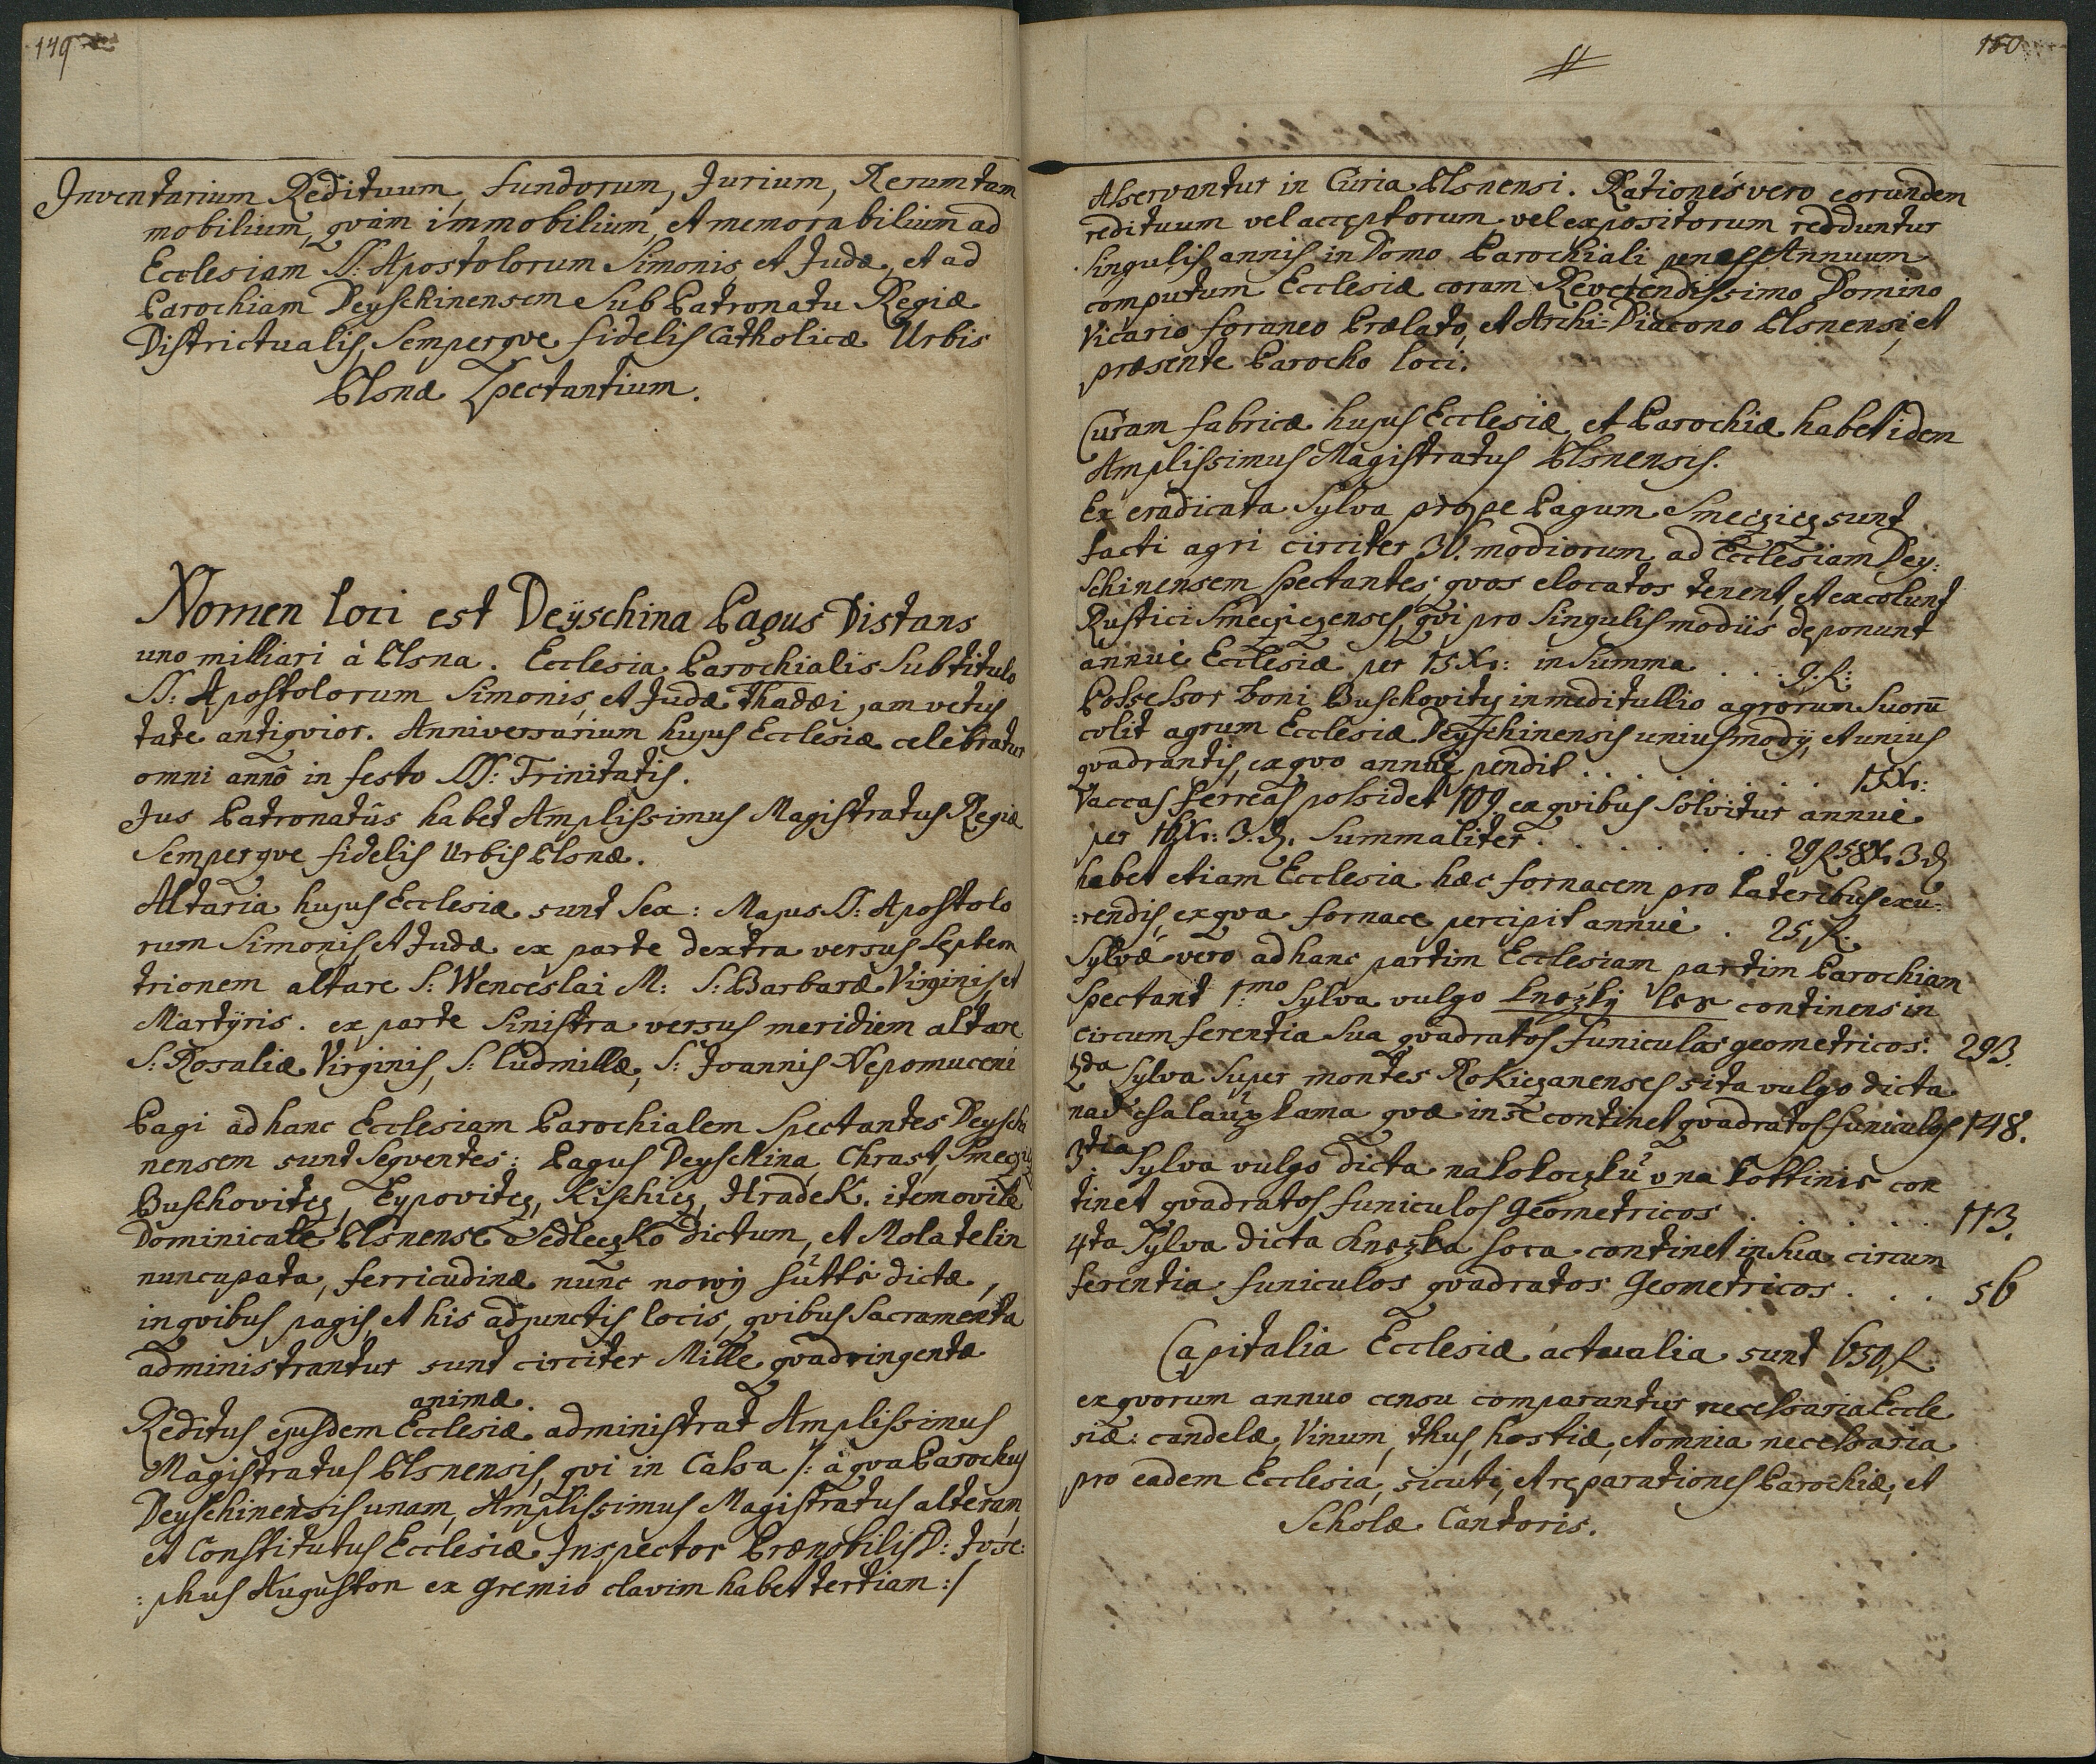 149
Inventarium Redituum, fundorum, Jurium, Rerum tam
mobilium, qvàm immobilium, et memorabilium ad
Ecclesiam SS: Apostolorum Simonis et Judæ, et ad
Parochiam Deyschinensem Sub Patronatu Regiæ
Districtualis, Semperqve fidelis Catholicæ Urbis
Plsnæ Spectantium.
Nomen loci est Deÿschina Pagus Distans
uno milliari à Plsna. Ecclesia Parochialis Sub titulo
SS: Apostolorum Simonis, et Judæ Thadæi, am vetus
tate antiqvior. Anniversarium hujus Ecclesiæ celebratur
omni annô in festo SS: Trinitatis.
Jus Patronatûs habet Amplissimus Magistratus Regiæ
Semperqve fidelis Urbis Plsnæ.
Altaria hujus Ecclesiæ sunt Sex: Majus SS: Apostolo
rum Simonis, et Judæ ex parte dextra versus Septem
trionem altare S: Wenceslai M: S: Barbaræ Virginis et
Martÿris. ex parte Sinistra versus meridiem altare
S: Rosaliæ Virginis, S: Ludmillæ, S: Joannis Nepomuceni
Pagi ad hanc Ecclesiam Parochialem Spectantes Deyschi
nensem sunt Seqventes: Pagus Deyschina, Chrast, Smeczicz
Buschovitcz, Eypovitcz, Kischicz, Hradek. item ovile
Dominicale Plsnense Sedleczko dictum, et Mola telin
nuncupata, ferricudinæ nunc nowÿ hütti dictæ,
in qvibus pagis, et his adjunctis locis, qvibus Sacramenta
administrantur sunt circiter Mille qvadringentæ
animæ.
Reditus ejusdem Ecclesiæ administrat Amplissimus
Magistratus Plsnensis, qvi in Cassa /: à qva Parochus
Deyschinensis unam, Amplissimus Magistratus alteram,
et Constitutus Ecclesiæ Inspector Prænobilis D: Jose:
:phus Auguston ex gremio clavim habet tertiam :/
150
Asservantur in Curia Plsnensi. Rationes vero eorundem
redituum vel acceptorum, vel expositorum redduntur
Singulis annis in Domo Parochiali penes Annuum
computum Ecclesiæ coram Reverendissimo Domino
Vicario foraneo Prælato, et Archi-Diacono Plsnensi, et
præsente Parocho loci.
Curam fabricæ hujus Ecclesiæ, et Parochiæ habet idem
Amplissimus Magistratus Plsnensis.
Ex eradicata Sylva prope Pagum Smeczicz sunt
facti agri circiter 36. modiorum ad Ecclesiam Dey:
Schinensem Spectantes, qvos elocatos tenent, et excolunt
Rustici Smecziczenses, qvi pro Singulis modiis deponunt
annuè Ecclesiæ per 15 Xr: in Summa . . . 9. fl:
Possessor boni Buschovitcz in meditullio agrorum Suorū
colit agrum Ecclesiæ Deyschinensis unius modÿ, et unius
qvadrantis, ex qvo annuè pendit . . . . . . . . 15 Xr:
Vaccas ferreas possidet 109 ex qvibus Solvitur annuè
per 16 Xr: 3. ₰. Summaliter . . . . . . . . 29 fl 58 Xr 3 ₰
habet etiam Ecclesia hæc fornacem pro lateribus exu:
:rendis, ex qva fornace percipit annuè . 25 fl:
Sylvæ vero ad hanc partim Ecclesiam partim Parochiam
Spectant 1:mo Sylva vulgo kneżkÿ les continens in
circumferentia Sua qvadratos funiculos geometricos: 293.
2da Sylva Super montes Rokiczanenses sita vulgo dicta
nad chalaupkama qvæ in se continet qvadratos funiculos 148.
3tia Sylva vulgo dicta na kokoczkú v na kottinis con
tinet qvadratos funiculos Geometricos . . . . . . 113.
4ta Sylva dicta knezka hora continet in Sua circum
ferentia funiculos qvadratos Geometricos . . . 56
Capitalia Ecclesiæ actualia sunt 650 fl:
ex qvorum annuo censu comparantur necessaria Eccle
siæ: candelæ, Vinum, thus, hostiæ, et omnia necessaria
pro eadem Ecclesia, sicuti, et reparationes Parochiæ, et
Scholæ Cantoris.